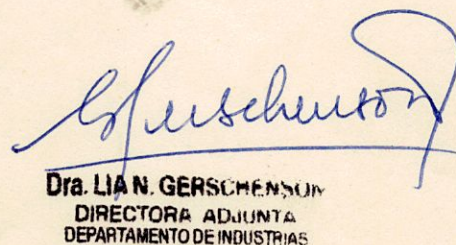 Gerschenson
Dra. LIA N. GERSCHENSON
DIRECTORA ADJUNTA
DEPARTAMENTO DE INDUSTRIAS